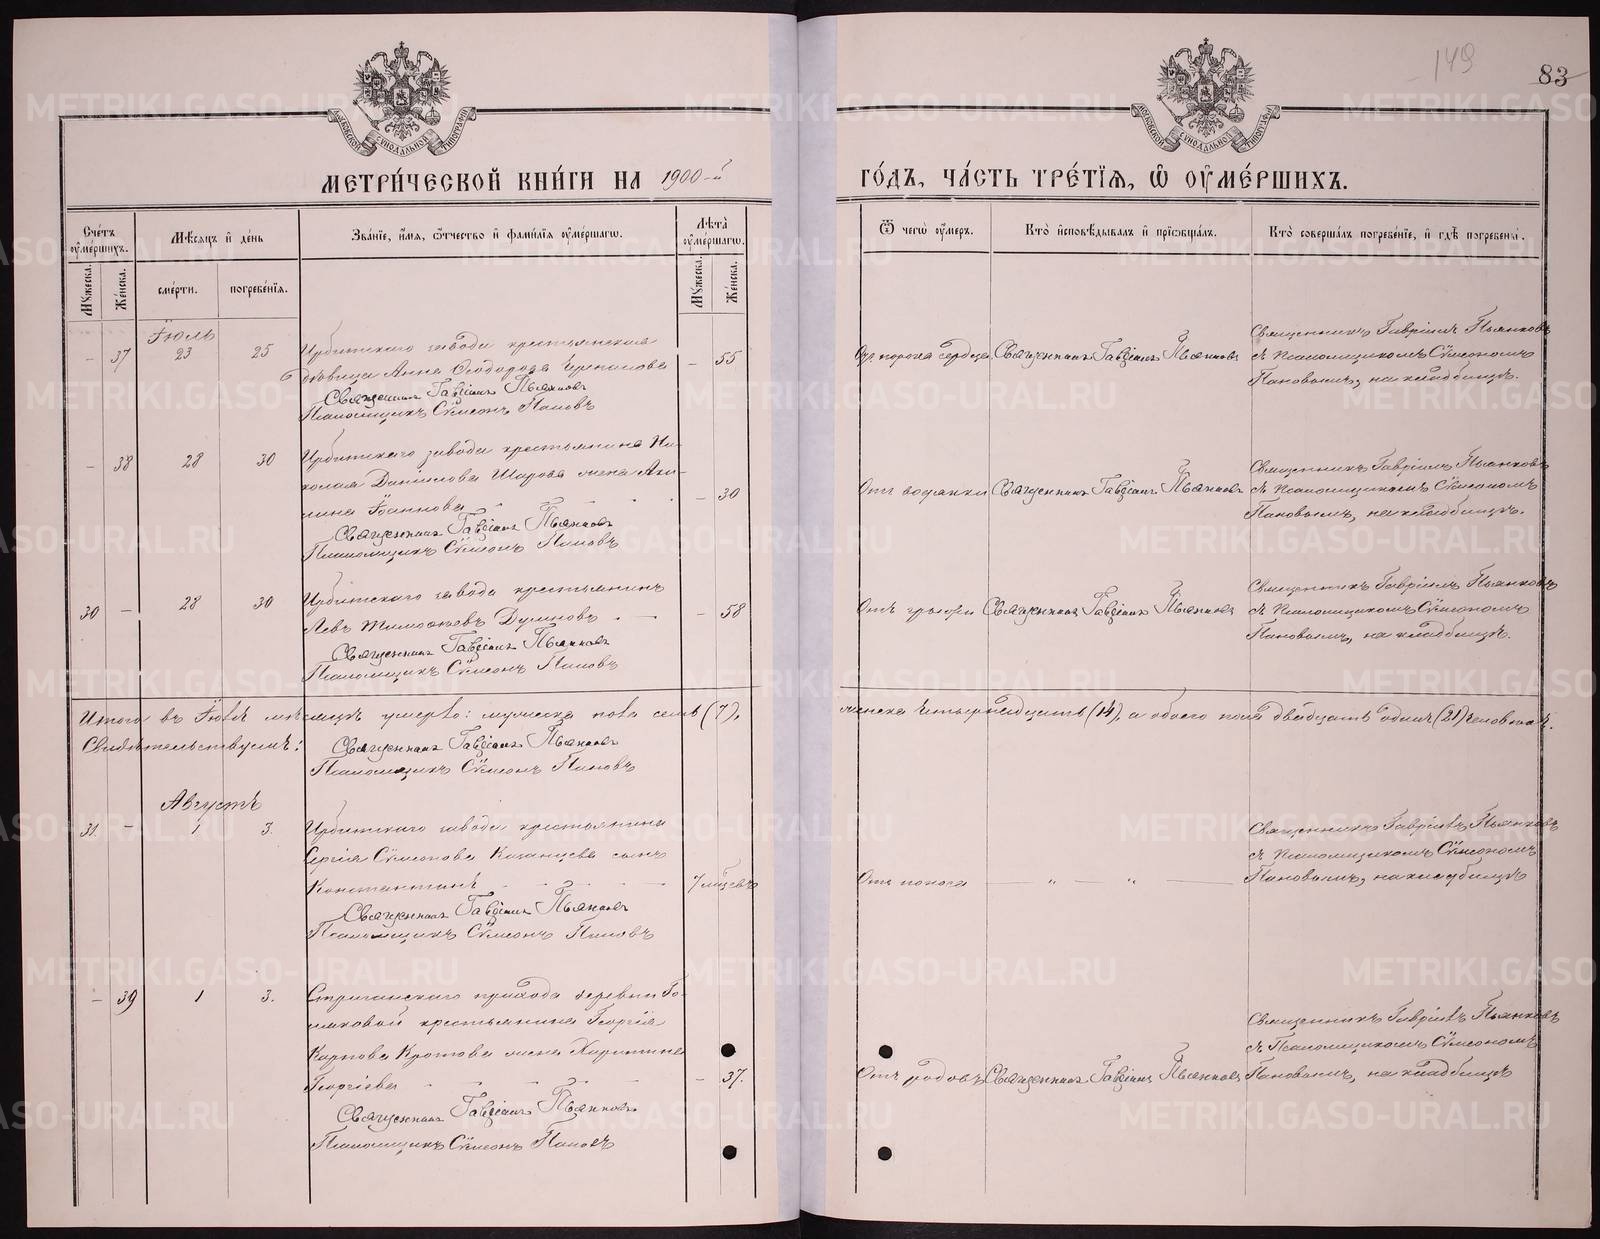 149
83
МОСКОВСКОЙ СѴНОДАЛЬНОЙ ТИПОГРАФІИ
МОСКОВСКОЙ СѴНОДАЛЬНОЙ ТИПОГРАФІИ
МЕТРИ́ЧЕСКОЙ КНИ́ГИ НА 1900-й
ГО́ДЪ, ЧА́СТЬ ТРЕ́ТІѦ, Ѽ ОУ҆МЕ́РШИХЪ.
Сче́тъ оу҆ме́ршихъ.
Мѣ́сѧцъ и҆ де́нь
Зва́нїе, и҆́мѧ, ѻ҆́тчество и҆ фамі́лїѧ оу҆ме́ршагѡ.
Лѣ́та оу҆ме́ршагѡ.
Ѿ чегѡ̀ оу҆́меръ.
Кто̀ и҆сповѣ́дывалъ и҆ прїѡбща́лъ.
Кто̀ соверша́лъ погребе́нїе, и҆ гдѣ̀ погребены̀.
Мꙋ́жеска.
Же́нска.
сме́рти.
погребе́нїѧ.
Мꙋ́жеска.
Же́нска.
Іюль
– 37 23 25 Ирбитскаго завода крестьянская
дѣвица Анна Ѳеодорова – 55
Священникъ Гавріилъ Пьянковъ
Псаломщикъ Сѵмеонъ Пановъ
От порока сердца Священникъ Гавріилъ Пьянковъ
Священникъ Гавріилъ Пьянковъ
съ Псаломщикомъ Сѵмеономъ
Пановымъ, на кладбищѣ.
– 38 28 30 Ирбитскаго завода крестьянина Ни-
колая Даніилова Шарова жена Аки-
лина Іоаннова – 30
Священникъ Гавріилъ Пьянковъ
Псаломщикъ Сѵмеонъ Пановъ
Отъ водянки Священникъ Гавріилъ Пьянковъ
Священникъ Гавріилъ Пьянковъ
съ Псаломщикомъ Сѵмеономъ
Пановымъ, на кладбищѣ.
30 – 28 30 Ирбитскаго завода крестьянинъ
Левъ Тимоѳеевъ – 58
Священникъ Гавріилъ Пьянковъ
Псаломщикъ Сѵмеонъ Пановъ
Отъ грыжи Священникъ Гавріилъ Пьянковъ
Священникъ Гавріилъ Пьянковъ
съ Псаломщикомъ Сѵмеономъ
Пановымъ, на кладбищѣ.
Итого въ Іюлѣ мѣсяцѣ умерло: мужеска пола семь (7),
женска четырнадцать (14), а обоего пола двадцать одинъ (21) человѣкъ.
Свидѣтельствуемъ: Священникъ Гавріилъ Пьянковъ
Псаломщикъ Сѵмеонъ Пановъ
Августъ
31. – 1 3. Ирбитскаго завода крестьянина
Сергія Сѵмеонова Казанцева сынъ
Константинъ 7 мѣсяц.
Священникъ Гавріилъ Пьянковъ
Псаломщикъ Сѵмеонъ Пановъ
Отъ поноса — „ — „ —
Священникъ Гавріилъ Пьянковъ
съ Псаломщикомъ Сѵмеономъ
Пановымъ, на кладбищѣ
– 39 1 3. Стриганскаго прихода деревни
крестьянина Георгія
Карпова Кротова жена Харитина
Георгіева – 37.
Священникъ Гавріилъ Пьянковъ
Псаломщикъ Сѵмеонъ Пановъ
Отъ родовъ Священникъ Гавріилъ Пьянковъ
Священникъ Гавріилъ Пьянковъ
съ Псаломщикомъ Сѵмеономъ
Пановымъ, на кладбищѣ
METRIKI.GASO-URAL.RU